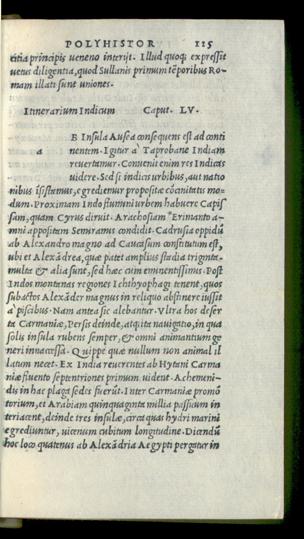 POLYHISTOR 115
citia principis ueneno interijt. Illud quoq; expressit
uetus diligentia, quod Sullanis primum tẽporibus Ro-
mam illati sunt uniones.
Itinerarium Indicum Caput. LV.
a
E Insula ad conti
nentem. Igitur a Taprobane Indiam
reuertamur. Conuenit enim res Indicas
uidere. Sed si indicis urbibus, aut natio
nibus egrediemur propositæ mo-
dum. Proximam Indo flumini urbem habuere Capis
sam, quam Cyrus diruit. Arachosiam Erimanto a-
mni appositem Semiramis condidit. Cadrusia oppidũ
ab Alexandro magno ad Caucasum constitutum est,
ubi et Alexãdrea, quæ patet amplius stadia triginta.
multa & alia sunt, sed hæc cum eminentissimis. Post
Indos montanas regiones Ichthyophagi tenent, quos
subactos Alexãder magnus in reliquo abstinere iussit
a piscibus. Nam antea sic alebantur. Vltra hos deser
ta Carmaniæ, Persis deinde, atq; ita nauigatio, in qua
solis insula rubens semper, & omni animantium ge
neri inaccessa. Quippe quæ nullum non animal il
latum necet. Ex India reuertentes ab Hytani Carma
niæ fluento septentriones primum uident. Achemeni-
dis in hac plaga sedes fuerũt. Inter Carmaniæ promõ
torium, et Arabiam quinquaginta millia passuum in
teriacent, deinde tres insulæ, circa quas hydri marini
egrediuntur, uicenum cubitum longitudine. Dicendũ
hoc loco quatenus ab Alexãdria Aegypti pergatur in